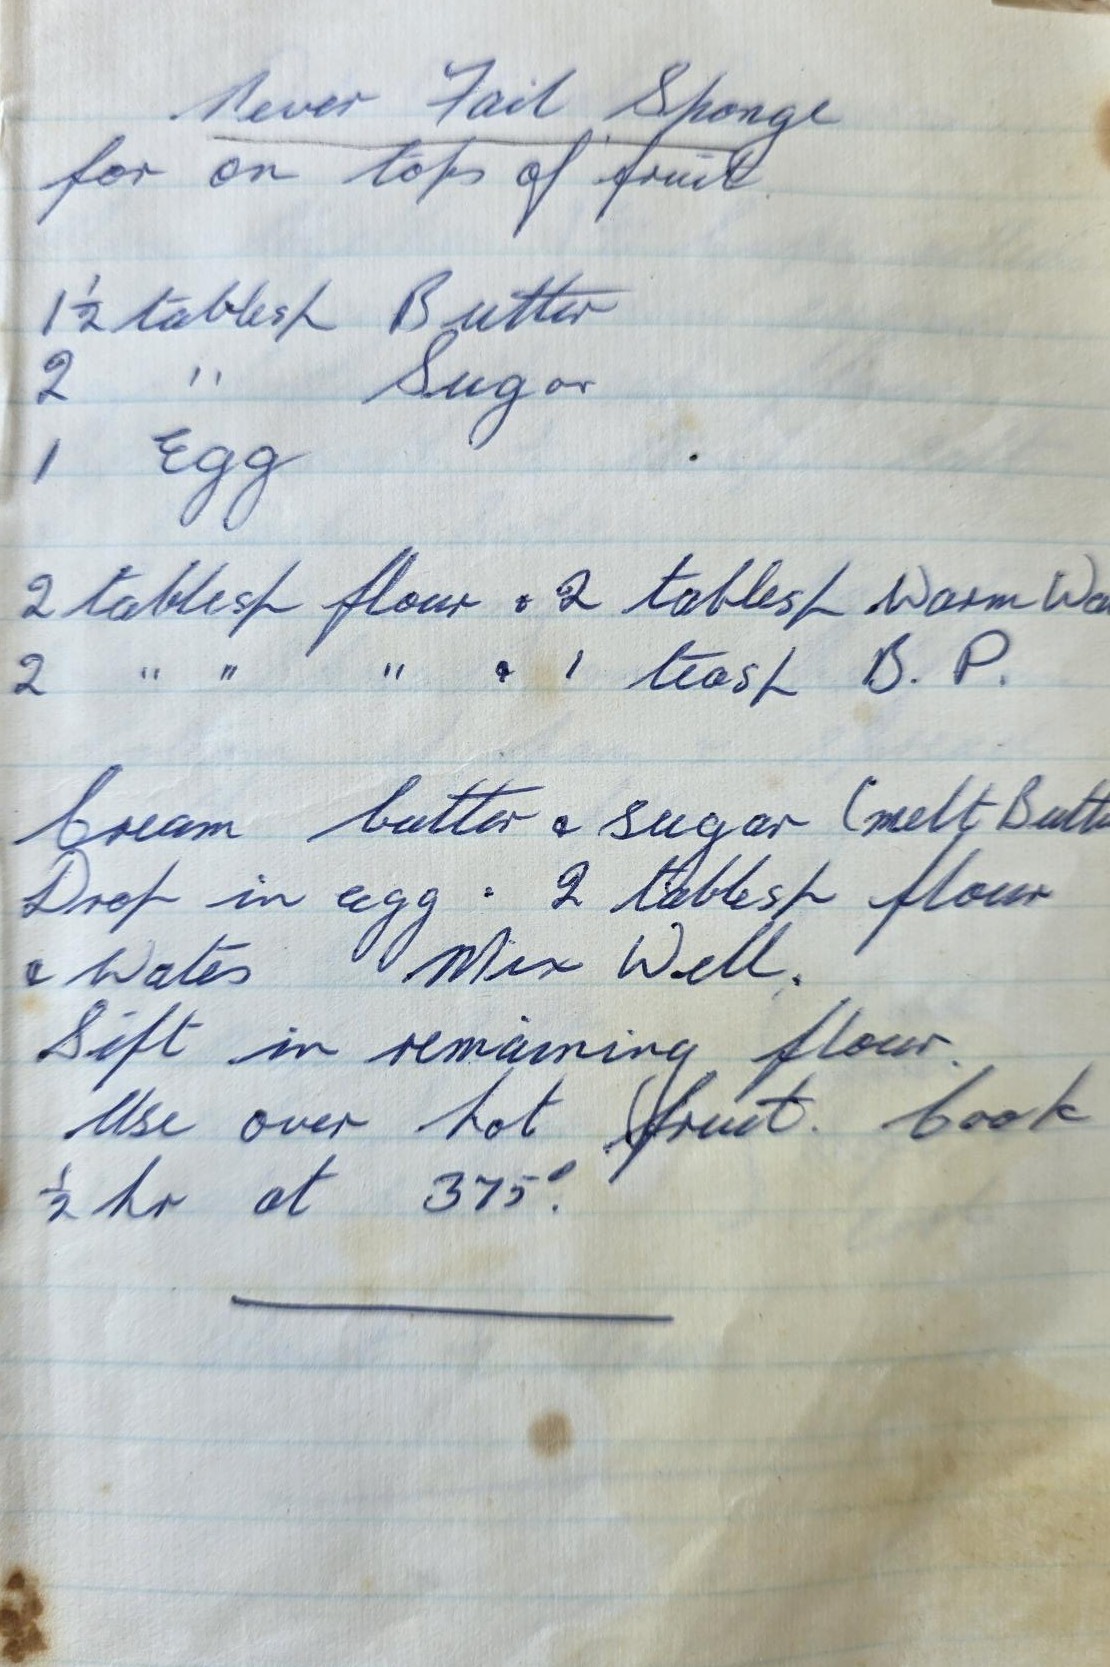 Never Fail Sponge
for on tops of fruit
1½ tablesp Butter
2 " Sugar
1 Egg
2 tablesp flour & 2 tablesp Warm Wa
2 " " " & 1 teasp B. P.
Cream butter & sugar (melt Butte
Drop in egg . 2 tablesp flour
& Water Mix Well.
Sift in remaining flour.
Use over hot fruit. Cook
½ hr at 375°.